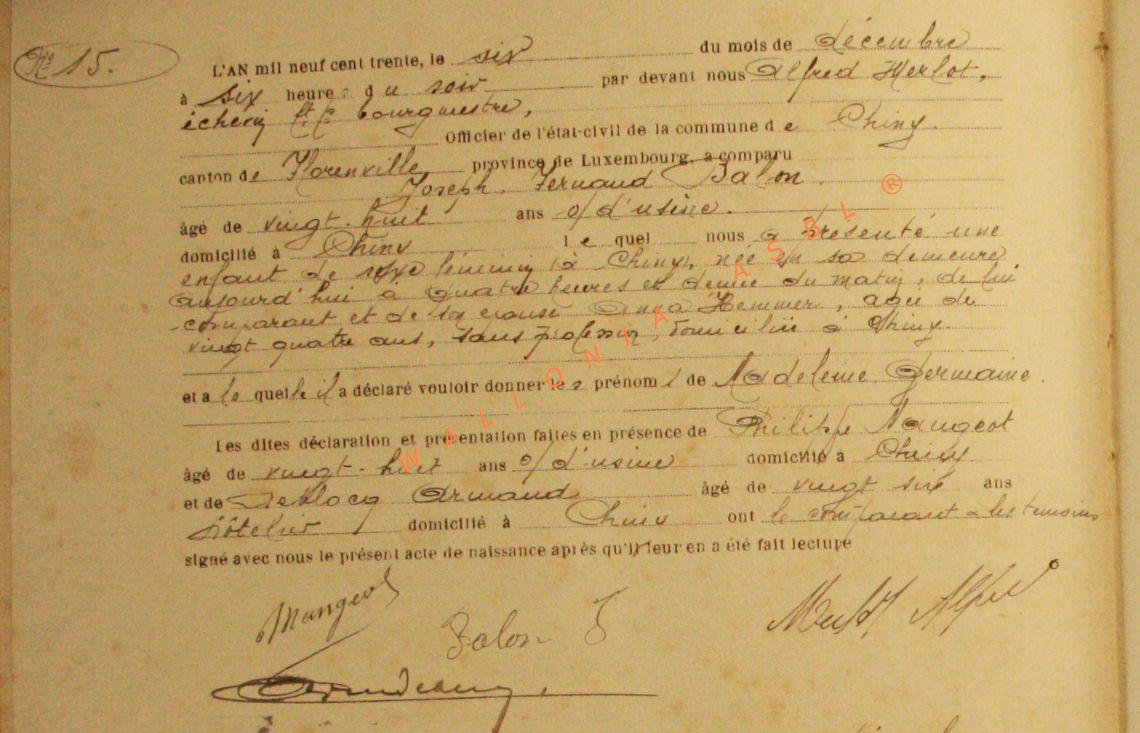 No 15.
L'AN mil neuf cent trente, le six du mois de décembre
à six heures du soir par devant nous Alfred Herlot,
échevin ff bourgmestre,
Officier de l'état-civil de la commune de Chiny.
canton de Florenville province de Luxembourg, a comparu
Joseph. Fernand Balon.
âgé de vingt-huit ans o/d'usine.
domicilié à Chiny lequel nous a présenté une
enfant de sexe féminin (à Chiny), née en sa demeure
aujourd'hui à quatre heures et demie du matin, de lui
comparant et de son épouse Anna Hemmer, agée de
vingt quatre ans, sans profession, domiciliée à Chiny.
et a le quelle il a déclaré vouloir donner les prénoms de Madeleine Germaine.
Les dites déclaration et présentation faites en présence de Philippe Mangeot
âgé de vingt-huit ans o/d'usine domicilié à Chiny
et de Armand âgé de vingt six ans
hôtelier domicilié à Chiny ont le comparant & les témoins
signé avec nous le présent acte de naissance après qu'il leur en a été fait lecture
Mangeot
Balon J
WALLONIA ASBL ®